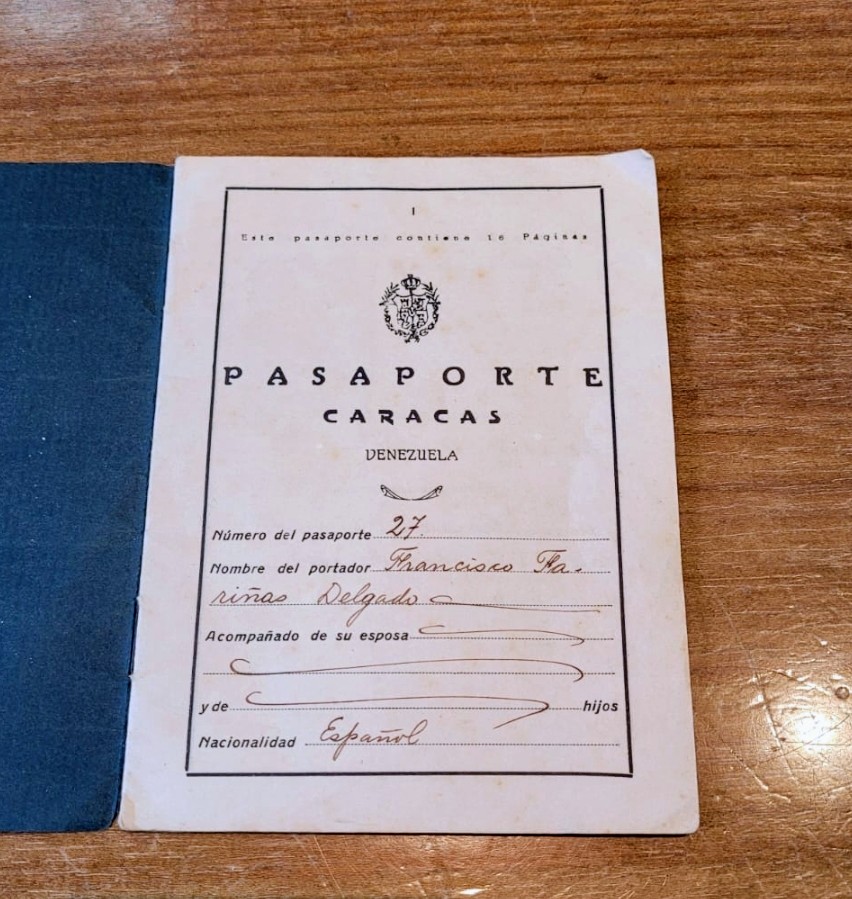 I
Este pasaporte contiene 16 Páginas
PASAPORTE
CARACAS
VENEZUELA
Número del pasaporte 27.
Nombre del portador Francisco Fa-
riñas Delgado
Acompañado de su esposa
y de hijos
Nacionalidad Español